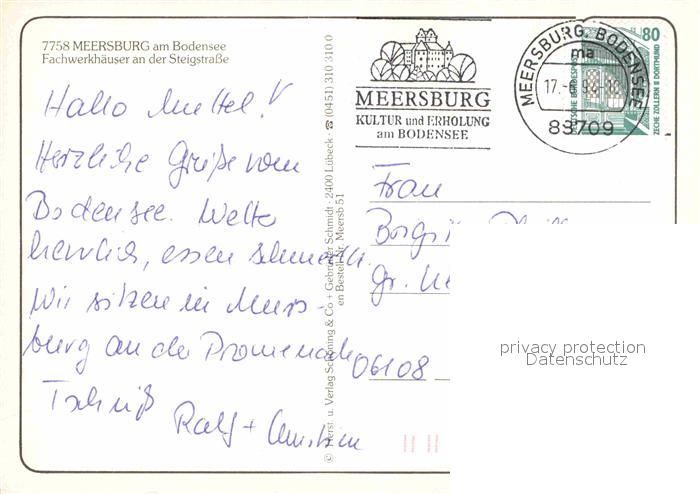 7758 MEERSBURG am Bodensee
Fachwerkhäuser an der Steigstraße
Hallo
Herzliche Grüße vom
Bodensee. Wetter
herrlich, essen schmeckt.
Wir sitzen in Meers-
burg an der Promenade
Tschüß
Ralf +
© Herst. u. Verlag Schöning & Co + Gebrüder Schmidt · 2400 Lübeck · ☎ (0451) 310 310 0
Bestell-Nr. Meersb 51
MEERSBURG
KULTUR und ERHOLUNG
am BODENSEE
MEERSBURG, BODENSEE
ma
17.
88709
80
DEUTSCHE BUNDESPOST
ZECHE ZOLLERN II DORTMUND
Frau
Gr.
06108
privacy protection
Datenschutz